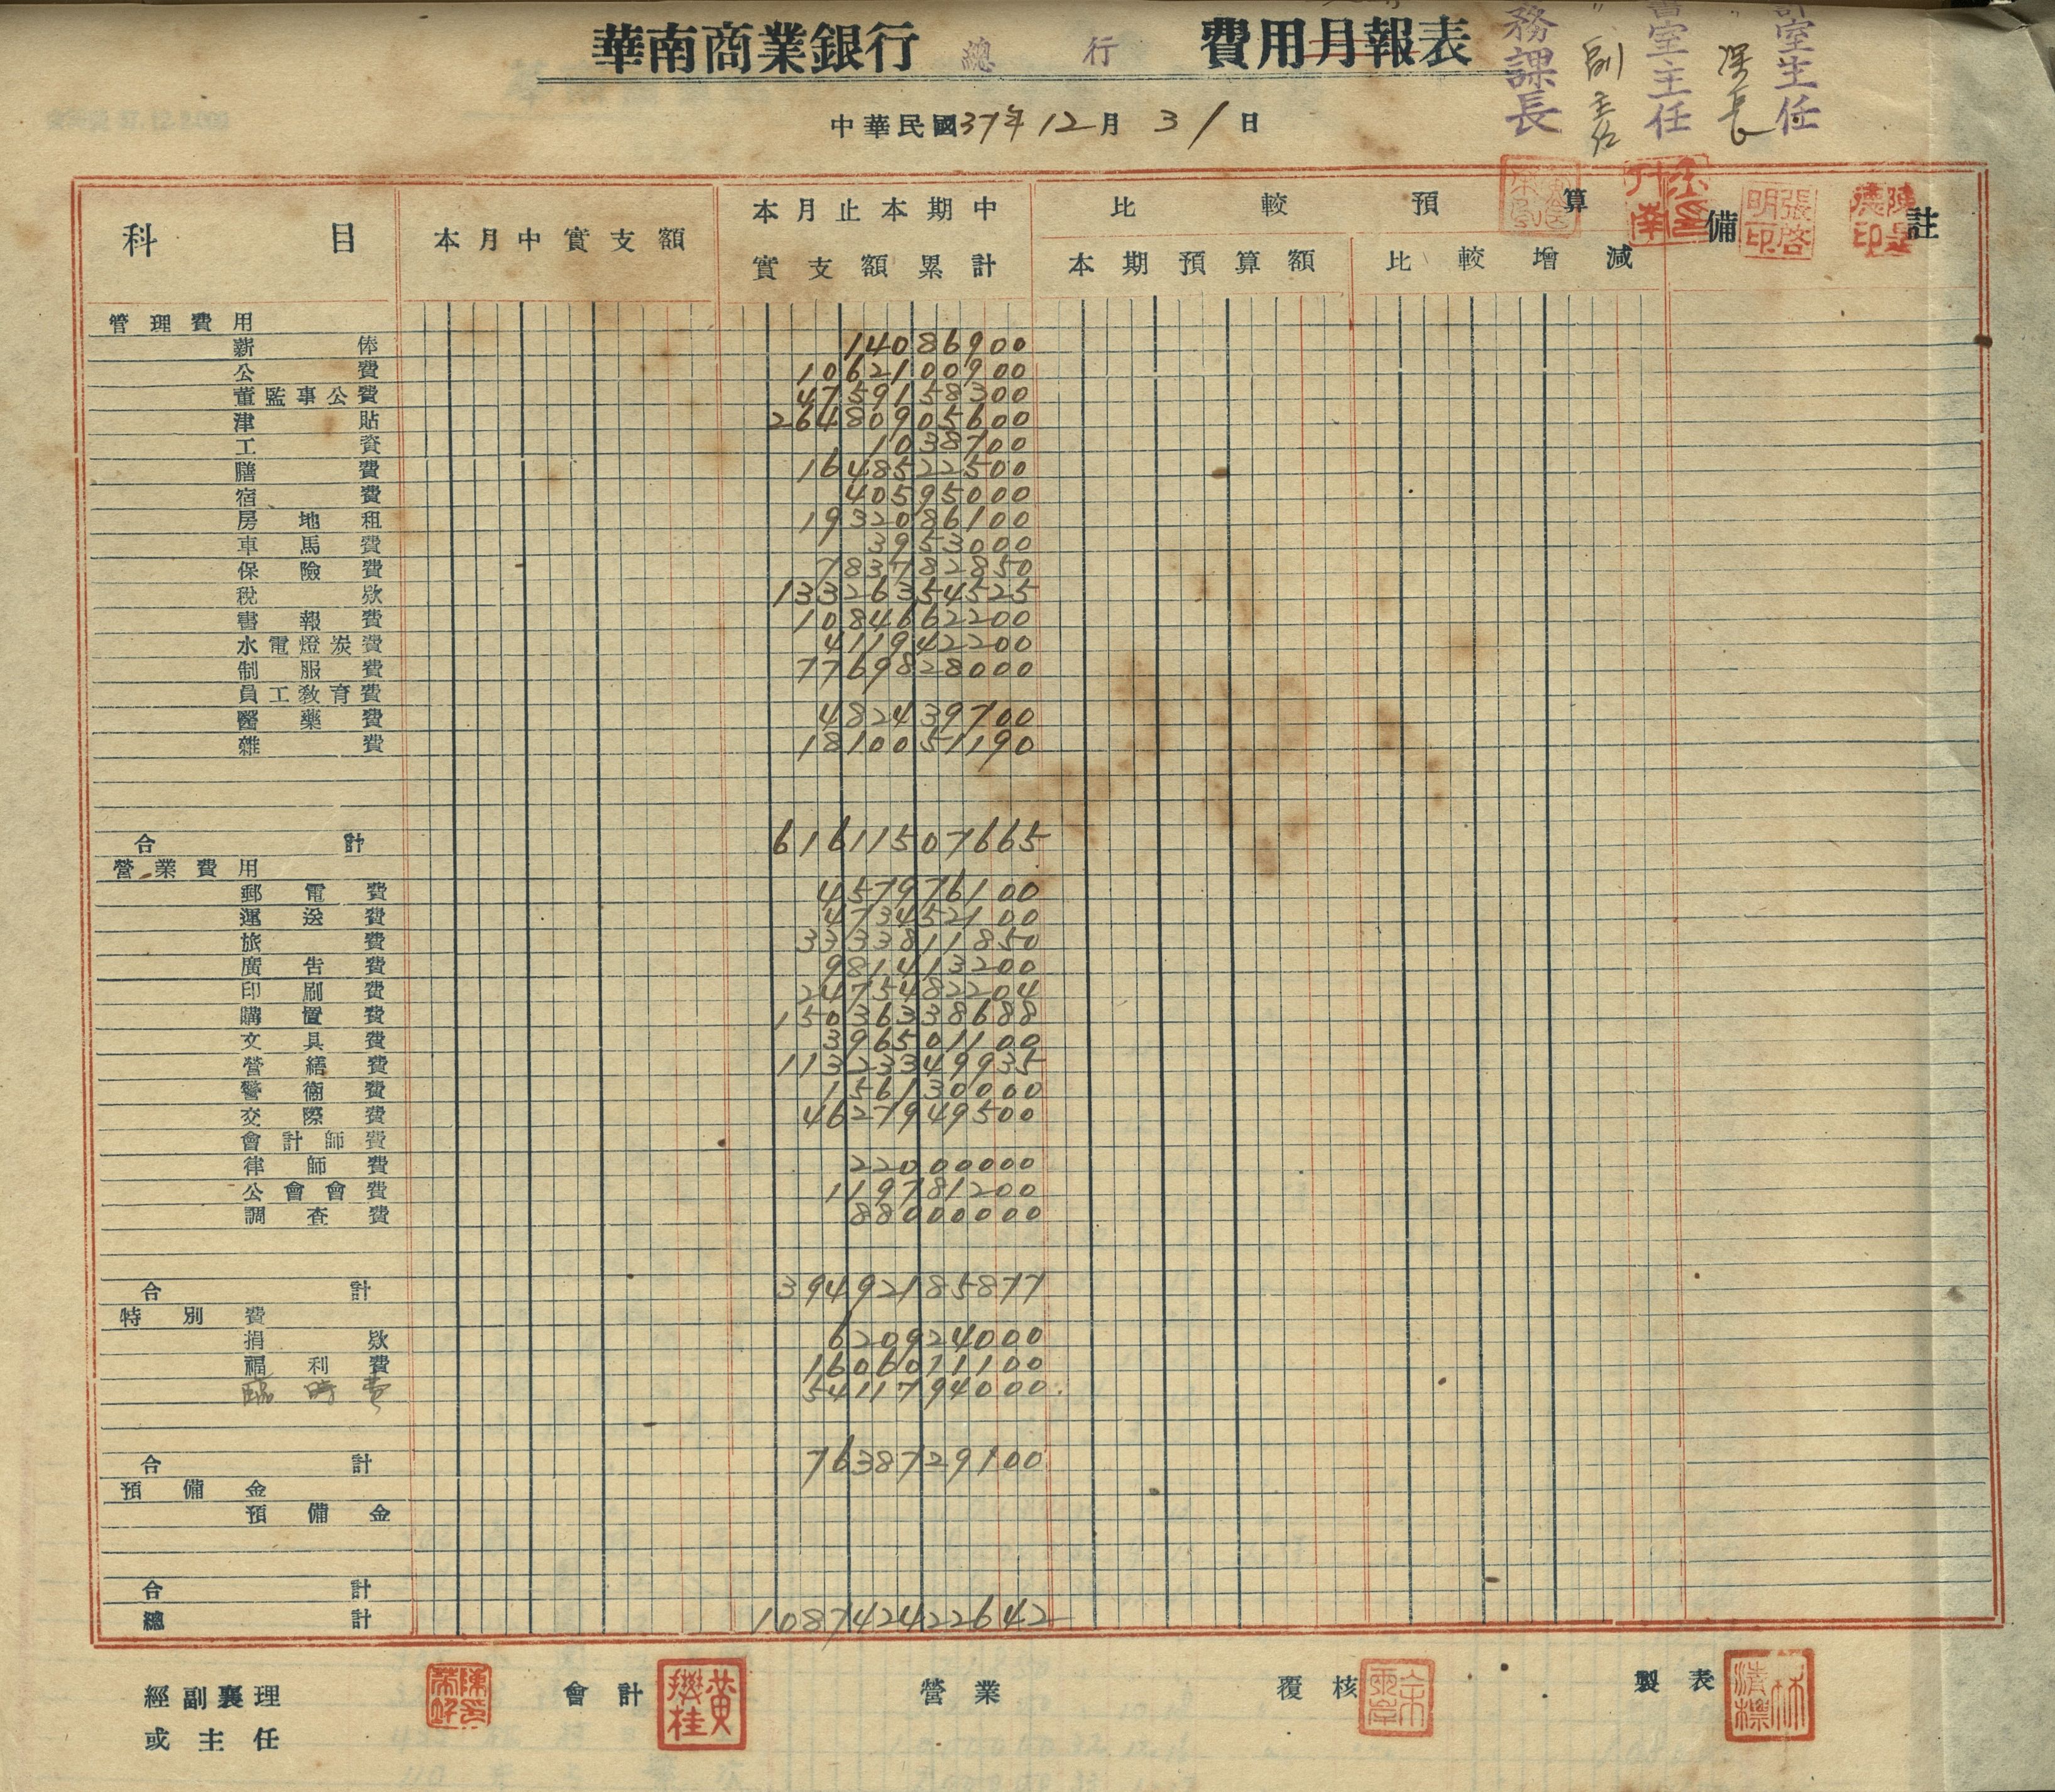 華南商業銀行 總行 費用月報表
務課長
副主任
室主任
課長
室主任
中華民國37年12月31日
科目 本月中實支額 本月止本期中實支額累計 比較預算 備註
本期預算額 比較增減
管理費用
薪俸 14086900
公費 1062100900
董監事公費 4759158300
津貼 26480905600
工資 1038700
膳費 1648522500
宿費 40595000
房地租 1932086100
車馬費 3953000
保險費 783782850
稅欵 13326354525
書報費 1084662200
水電燈炭費 411942200
制服費 7769828000
員工教育費
醫藥費 482439700
雜費 1810051190
合計 61611507665
營業費用
郵電費 457976100
運送費 473452100
旅費 3333811850
廣告費 981413200
印刷費 2475482204
購置費 15036338688
文具費 396501100
營繕費 11323349935
警衞費 156130000
交際費 4627949500
會計師費
律師費 22000000
公會會費 119781200
調查費 88000000
合計 39492185877
特別費
捐欵 620924000
福利費 1606011100
臨時費 5411794000
合計 7638729100
預備金
預備金
合計
總計 108742422642
經副襄理或主任 會計 營業 覆核 製表
張啓明印
黃
林清標